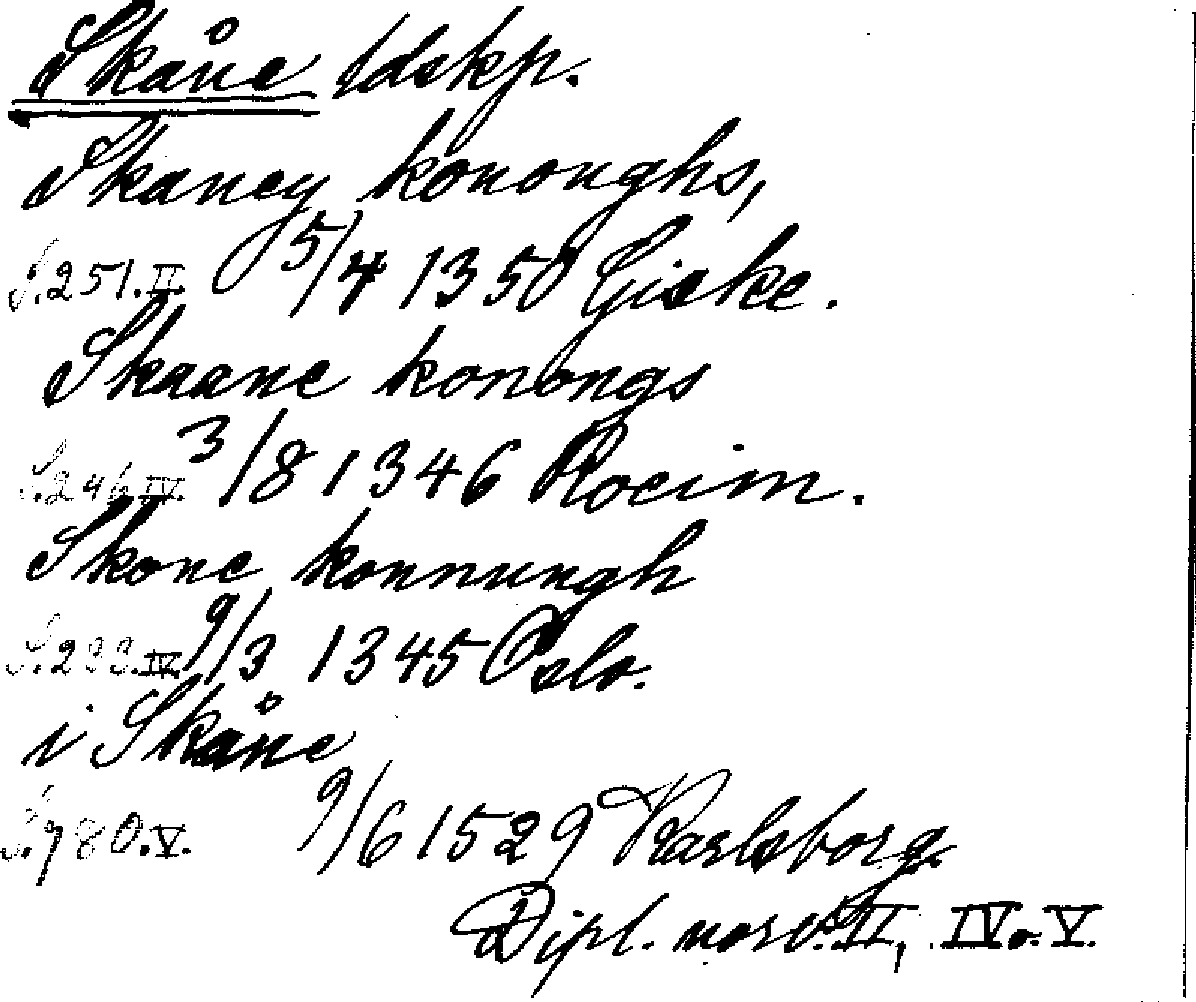 Skåne ldskp.
Skaney kononghs,
S.251.II. 5/4 1350 Giske.
Skaane konongs
S.246.IV. 3/8 1346 Roeim.
Skone konnungh
S.233.IV. 9/3 1345 Oslo.
i Skåne
S.780.V. 9/6 1529 Karlsborg.
Dipl. norv. II, IV o. V.